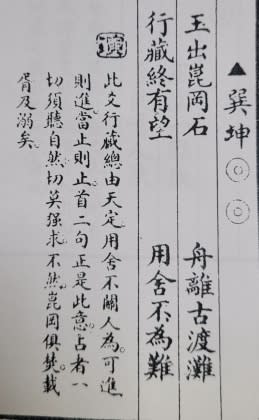 ▲ 巽坤 ◎◎
玉出崑岡石 舟離古渡灘
行藏終有望 用舍不為難
此爻行藏總由天定。用舍不關人為。可進
則進當止則止。首二句正是此意。占者八
切須聽自然。切莫强求。不然。崑岡俱焚。載
胥及溺矣。